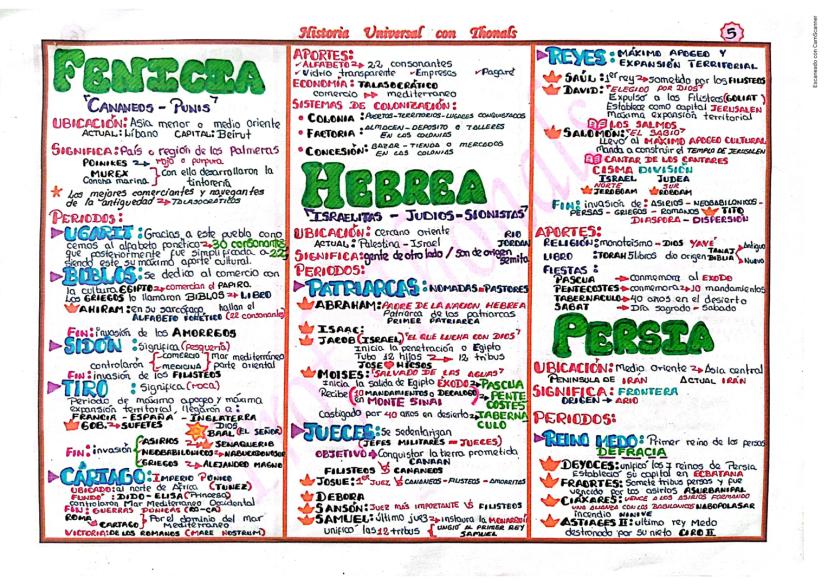 Historia Universal con Thonals
5
FENICIA
"CANANEOS - PUNIS"
UBICACIÓN: Asia menor o medio oriente
ACTUAL: Líbano CAPITAL: Beirut
SIGNIFICA: País o región de las palmeras
POINIKES → rojo o púrpura
MUREX
Concha marina
con ella desarrollaron la
tintorería
* Los mejores comerciantes y navegantes
de la antigüedad → TALASOCRÁTICOS
PERIODOS:
UGARIT: Gracias a este pueblo cono
cemos al alfabeto fonético → 30 consonantes
que posteriormente fue simplificada a 22
siendo este su máximo aporte cultural.
BIBLOS: se dedico al comercio con
la cultura EGIPTO → comercian el PAPIRO.
Los GRIEGOS lo llamaron BIBLOS → LIBRO
AHIRAM: en su sarcófago hallan el
ALFABETO FONÉTICO (22 consonantes)
FIN: Invasión de los AMORREOS
SIDÓN: Significa (pesquería)
controlarón comercio
medicina
Mar mediterráneo
parte oriental
FIN: invasión de los FILISTEOS
TIRO: Significa (roca)
Periodo de máximo apogeo y máxima
expansión territorial, llegarón a:
FRANCIA - ESPAÑA - INGLATERRA
GOB. → SUFETES
DIOS
BAAL (EL SEÑOR)
FIN: invasión
ASIRIOS → SENAQUERIB
NEOBABILÓNICOS → NABUCODONOSOR
GRIEGOS → ALEJANDRO MAGNO
CÁRTAGO: IMPERIO PÚNICO
UBICADO: al norte de África (TUNEZ)
FUNDO: DIDO - ELISA (Princesa)
controlaron Mar Mediterráneo Occidental
FIN: GUERRAS PÚNICAS (RO-CA)
ROMA
CARTAGO
Por el dominio del mar
Mediterráneo
VICTORIA: DE LOS ROMANOS (MARE NOSTRUM)
APORTES:
✓ALFABETO → 22 consonantes
✓Vidrio transparente ✓Empresas ✓Pagaré
ECONOMÍA: TALASOCRÁTICO
comercio → mediterráneo
SISTEMAS DE COLONIZACIÓN:
• COLONIA: PUERTOS-TERRITORIOS-LUGARES CONQUISTADOS
• FACTORIA: ALMACEN - DEPOSITO o TALLERES
EN LAS COLONIAS
• CONCESIÓN: BAZAR - TIENDA o MERCADOS
EN LAS COLONIAS
HEBREA
"ISRAELITAS - JUDIOS - SIONISTAS"
UBICACIÓN: cercano oriente
ACTUAL: Palestina - Israel
RIO
JORDAN
SIGNIFICA: gente de otro lado / son de origen
semita
PERIODOS:
PATRIARCAS: NOMADAS = PASTORES
ABRAHAM: PADRE DE LA NACIÓN HEBREA
Patriarca de los patriarcas
PRIMER PATRIARCA
ISAAC:
JACOB (ISRAEL) "EL QUE LUCHA CON DIOS"
Inicia la penetración a Egipto
Tubo 12 hijos → 12 tribus
JOSE HICSOS
MOISES: "SALVADO DE LAS AGUAS"
Inicia la salida de Egipto EXODO → PASCUA
Recibe 10 MANDAMIENTOS o DECALOGO
en MONTE SINAI
PENTE
COSTES
Castigado por 40 años en desierto → TABERNA
CULO
JUECES: Se sedentarizan
(JEFES MILITARES - JUECES)
OBJETIVO → Conquistar la tierra prometida
CANAAN
FILISTEOS CANANEOS
JOSUE: 1er JUEZ CANANEOS - FILISTEOS - AMORITAS
DEBORA
SANSÓN: JUEZ MÁS IMPORTANTE FILISTEOS
SAMUEL: último juez → instaura la MONARQUÍA
unifico las 12 tribus
UNGIÓ AL PRIMER REY
SAMUEL
REYES: MÁXIMO APOGEO Y
EXPANSIÓN TERRITORIAL
SAÚL: 1er rey → sometido por los FILISTEOS
DAVID: "ELEGIDO POR DIOS"
Expulso a los Filisteos (GOLIAT)
Establece como capital JERUSALEN
Máxima expansión territorial
LOS SALMOS
SALOMÓN: "EL SABIO"
Llevó al MÁXIMO APOGEO CULTURAL
Manda a construir el TEMPLO DE JERUSALEN
CANTAR DE LOS CANTARES
CISMA DIVISIÓN
ISRAEL JUDEA
NORTE SUR
JEROBOAM ROBOAM
FIN: invasion de: ASIRIOS - NEOBABILONICOS -
PERSAS - GRIEGOS - ROMANOS TITO
DIASPORA - DISPERSIÓN
APORTES:
RELIGIÓN: monoteísmo - DIOS YAVE
LIBRO: TORAH 5 libros dio origen
TANAJ
BIBLIA
Antiguo
Nuevo
FIESTAS:
PASCUA → conmemora al EXODO
PENTECOSTES → conmemora → 10 mandamientos
TABERNACULO → 40 años en el desierto
SABAT → Día sagrado - Sabado
PERSIA
UBICACIÓN: Medio oriente → Asia central
PENINSULA DE IRAN ACTUAL IRÁN
SIGNIFICA: FRONTERA
ORIGEN → ARIO
PERIODOS:
REINO MEDO: Primer reino de los persas
DEFRACIA
DEYOCES: unifico los 2 reinos de Persia
Estableció su capital en ECBATANA
FRAORTES: Somete tribus persas y fue
vencido por los asirios ASURBANIPAL
CIAXARES: VENCE A LOS ASIRIOS FORMANDO
UNA ALIANZA CON LOS BABILONICOS NABOPOLASAR
Incendio NINIVE
ASTIAGES II: ultimo rey Medo
destronado por su nieto CIRO II
Escaneado con CamScanner